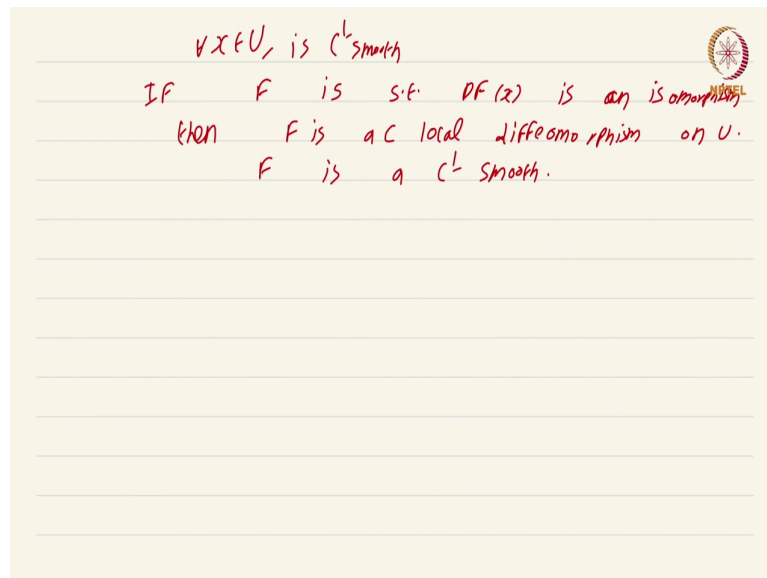 ∀ x ∈ U, is C¹-smooth
NPTEL
IF F is s.t. DF(x) is an isomorphism
then F is a C local diffeomorphism on U.
F is a C¹ smooth.